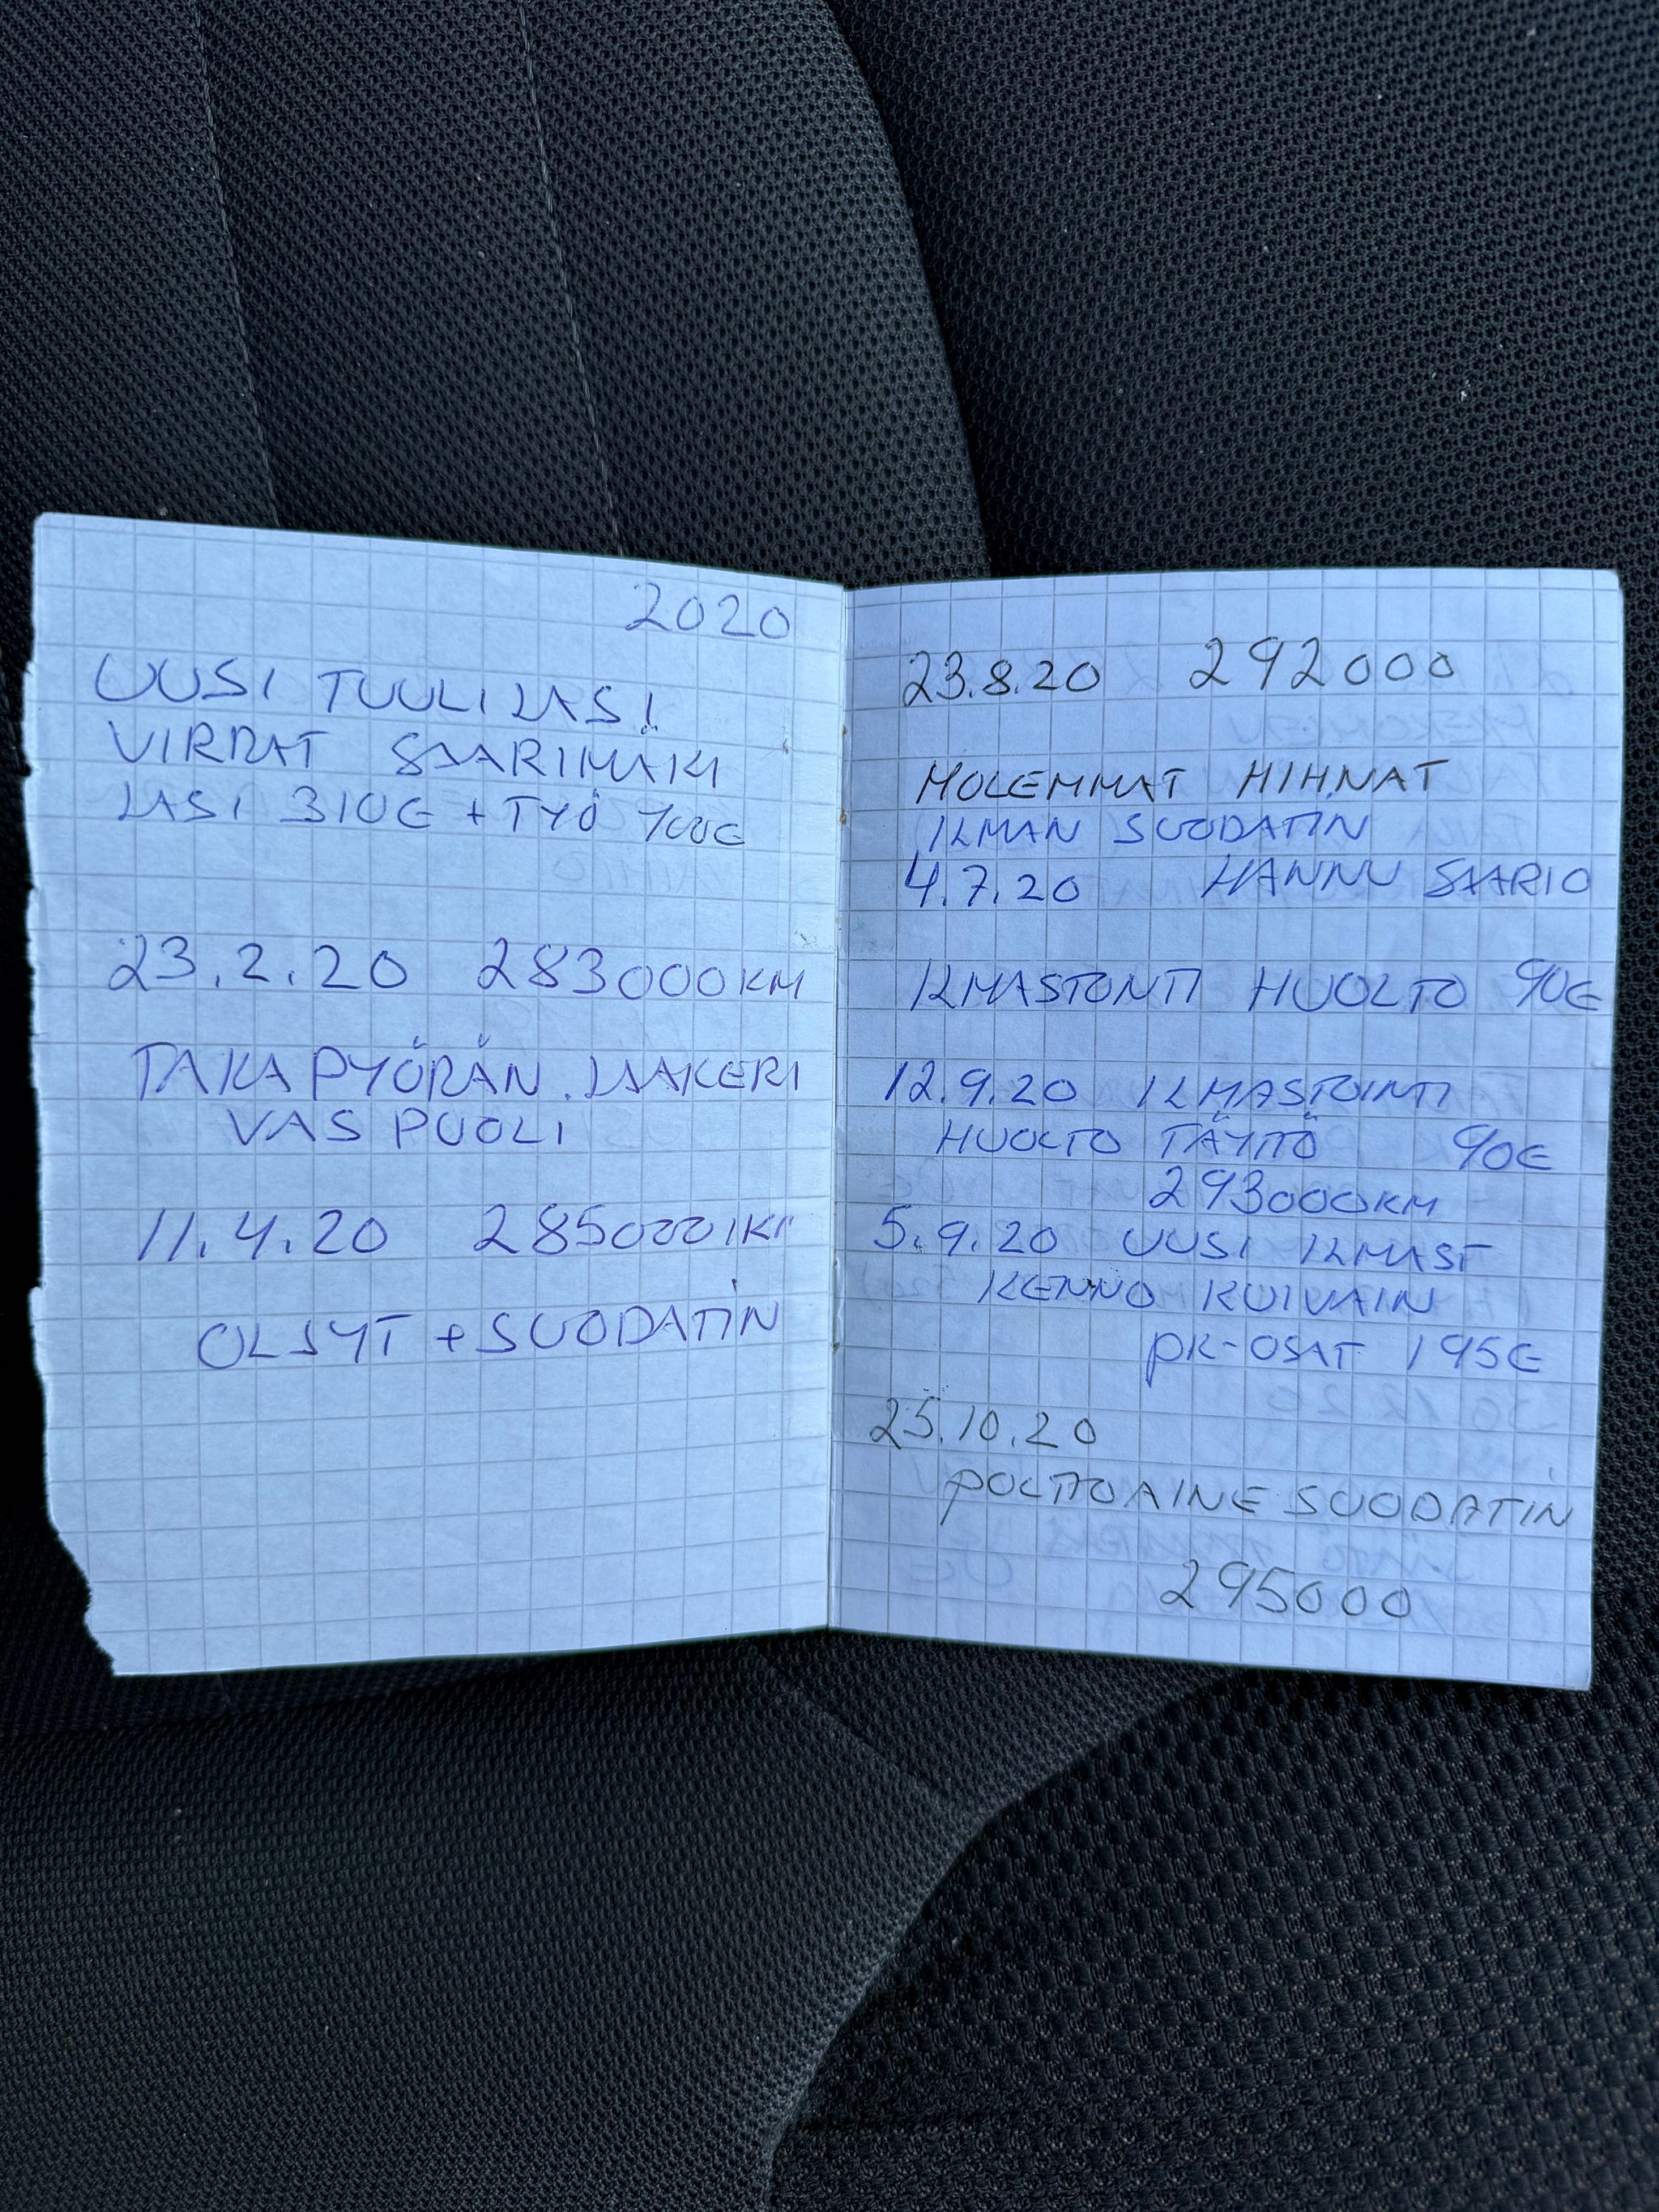 2020
UUSI TUULILASI
VIRRAT SAARIMÄKI
LASI 310€ + TYÖ 100€
23.2.20 283000KM
TAKAPYÖRÄN LAAKERI
VAS PUOLI
11.4.20 285000KM
ÖLJYT + SUODATIN
23.8.20 292000
MOLEMMAT HIHNAT
ILMAN SUODATIN
4.7.20 HANNU SAARIO
ILMASTONTI HUOLTO 90€
12.9.20 ILMASTOINTI
HUOLTO TÄYTTÖ 90€
293000KM
5.9.20 UUSI ILMAST
KENNO KUIVAIN
PK-OSAT 195€
25.10.20
POLTTOAINE SUODATIN
295000